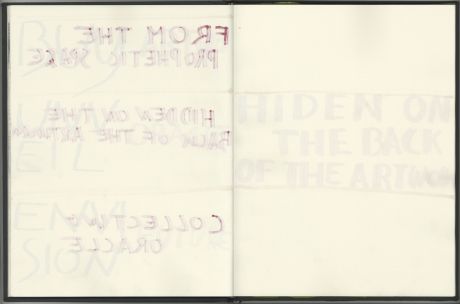 FROM THE
PROPHETIC SPACE
HIDDEN ON THE
BACK OF THE
EIL
COLLECTING
ORACLE
SION
HIDEN ON
THE BACK
OF THE ARTWORK